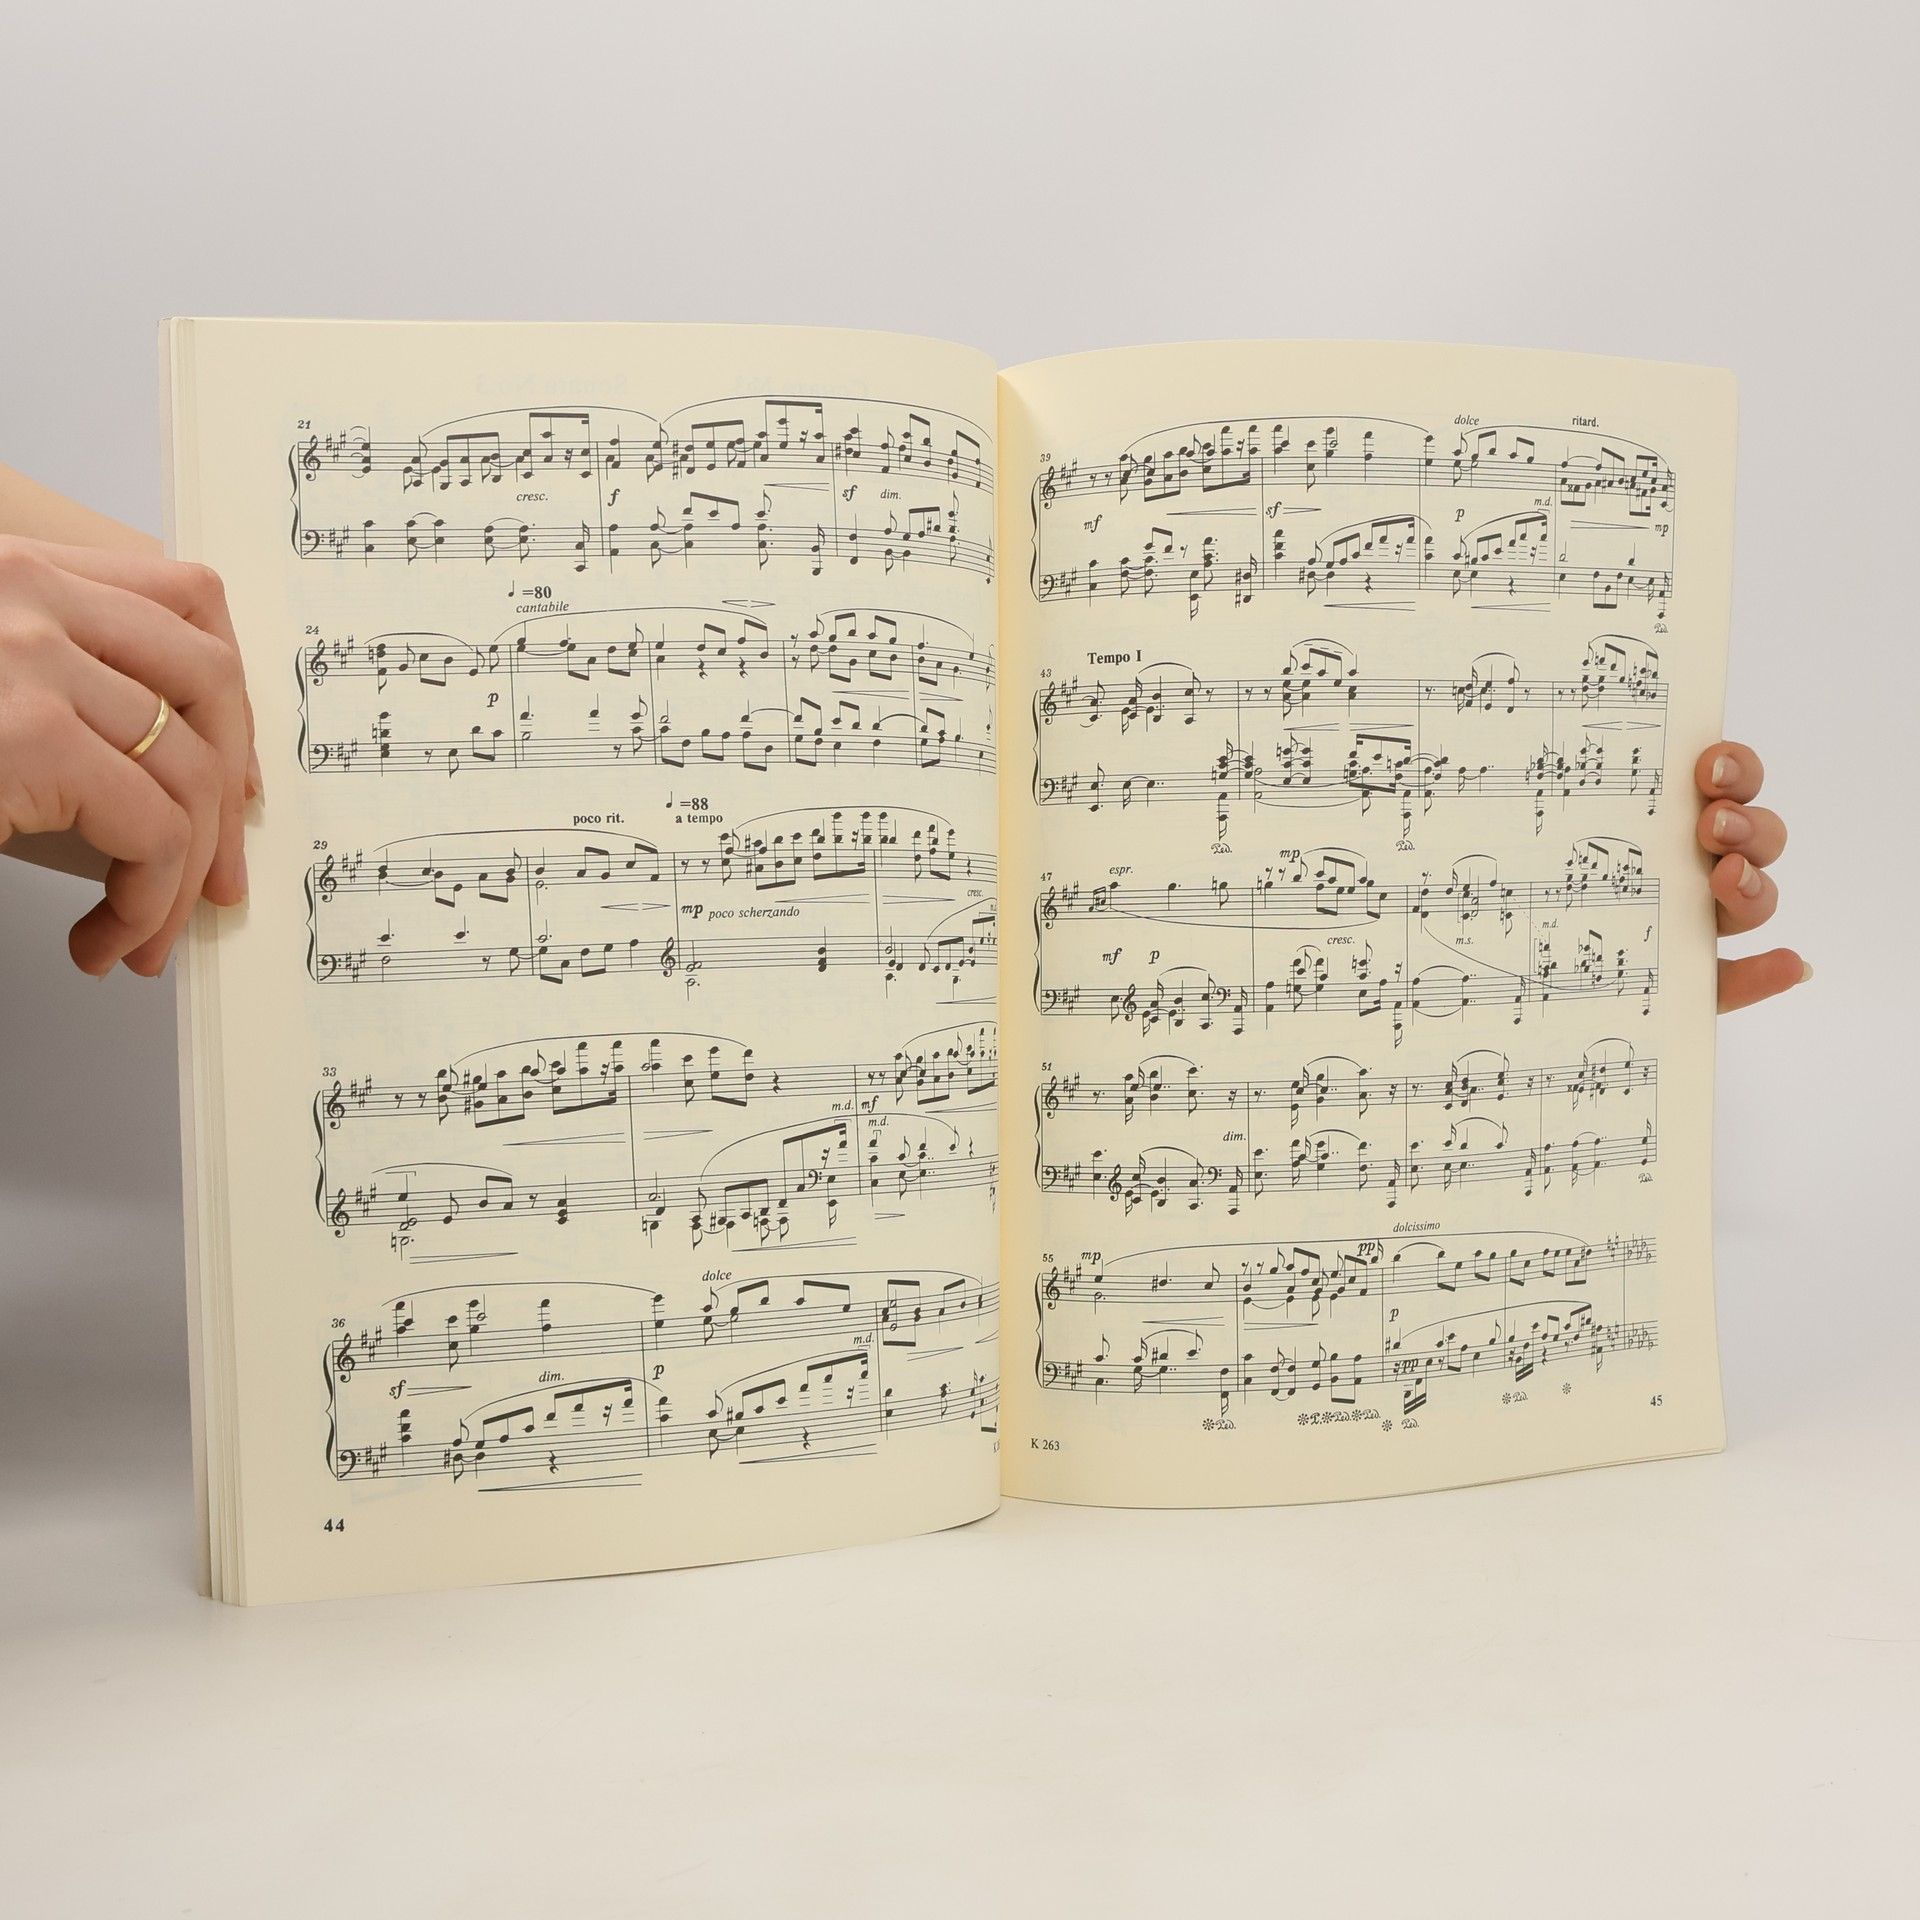 21
cresc.
f
sf
dim.
♩=80
cantabile
24
p
♩=88
poco rit.
a tempo
29
mp poco scherzando
cresc.
33
m.d.
mf
m.d.
36
dolce
m.d.
sf
dim.
p
44
dolce
ritard.
39
mf
sf
p
m.d.
mp
Ped.
Tempo I
43
Ped.
Ped.
mp
espr.
47
mf
p
cresc.
m.s.
m.d.
f
51
dim.
Ped.
dolcissimo
mp
pp
55
p
pp
Ped.
Ped.
Ped.
Ped.
Ped.
45
K 263